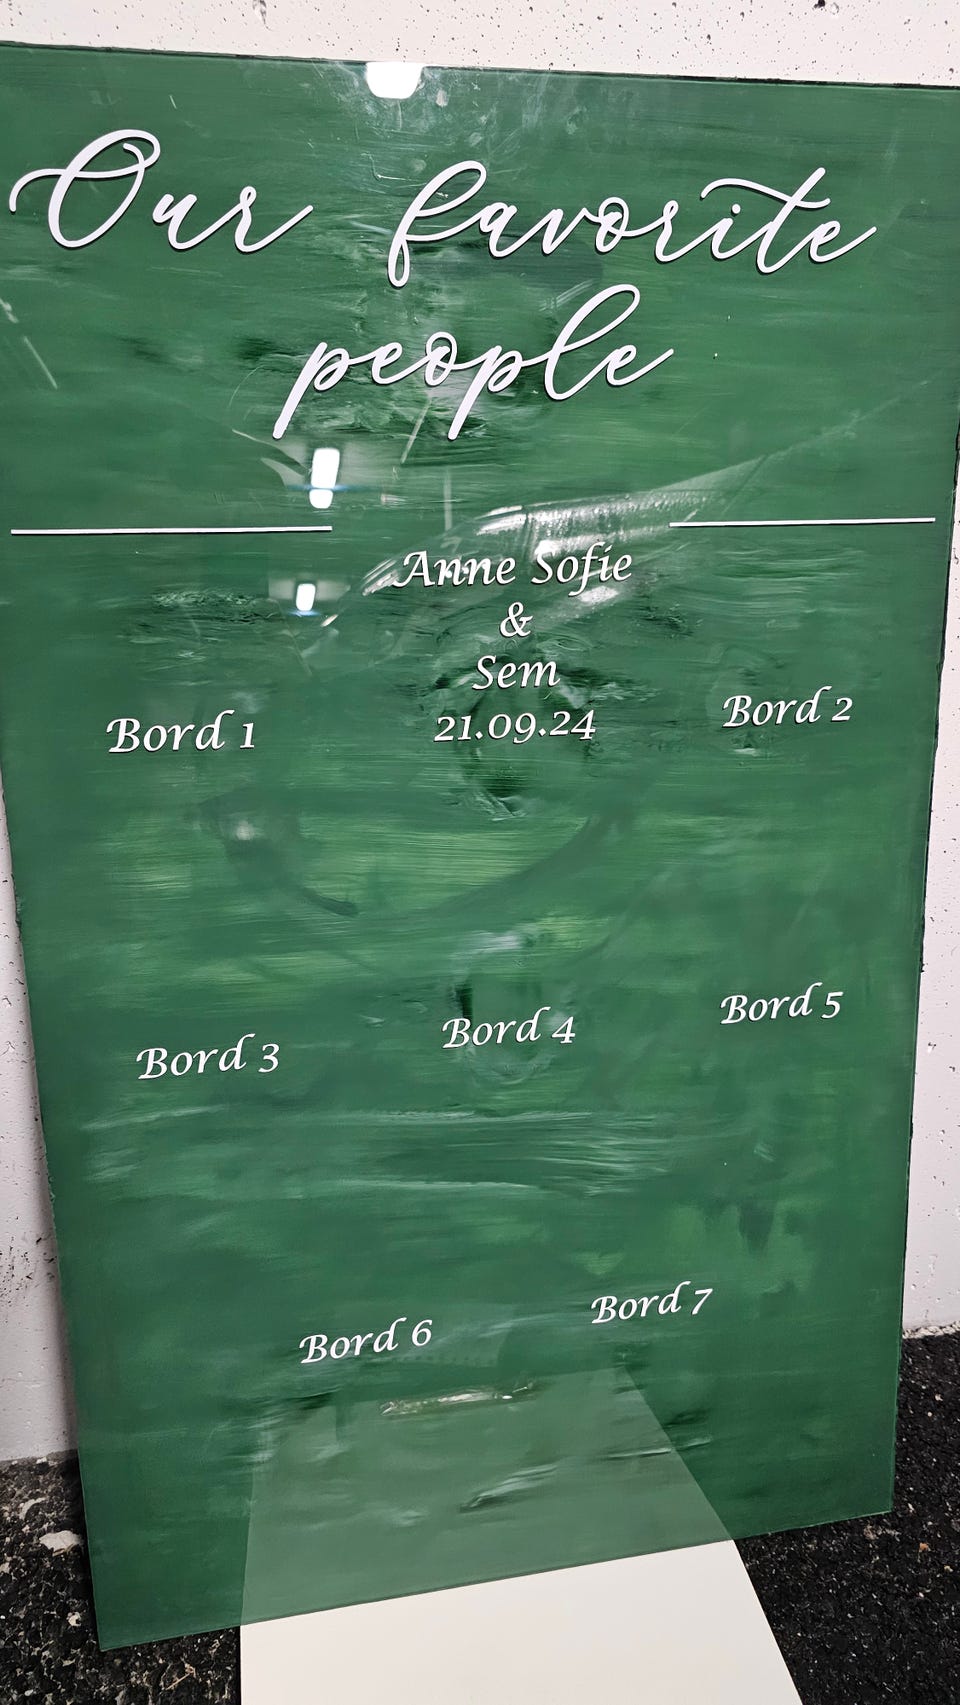 Our favorite
people
Anne Sofie
&
Sem
21.09.24
Bord 1
Bord 2
Bord 3
Bord 4
Bord 5
Bord 6
Bord 7